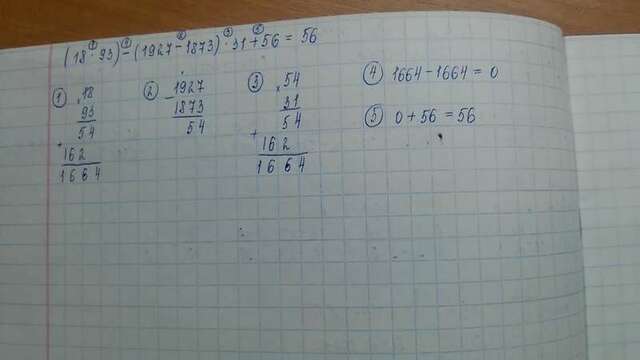 (18 · 93) - (1927 - 1873) · 31 + 56 = 56
① ② ③ ④ ⑤
① 18
93
54
+
162
1664
② - 1927
1873
54
③ × 54
31
54
+
162
1664
④ 1664 - 1664 = 0
⑤ 0 + 56 = 56